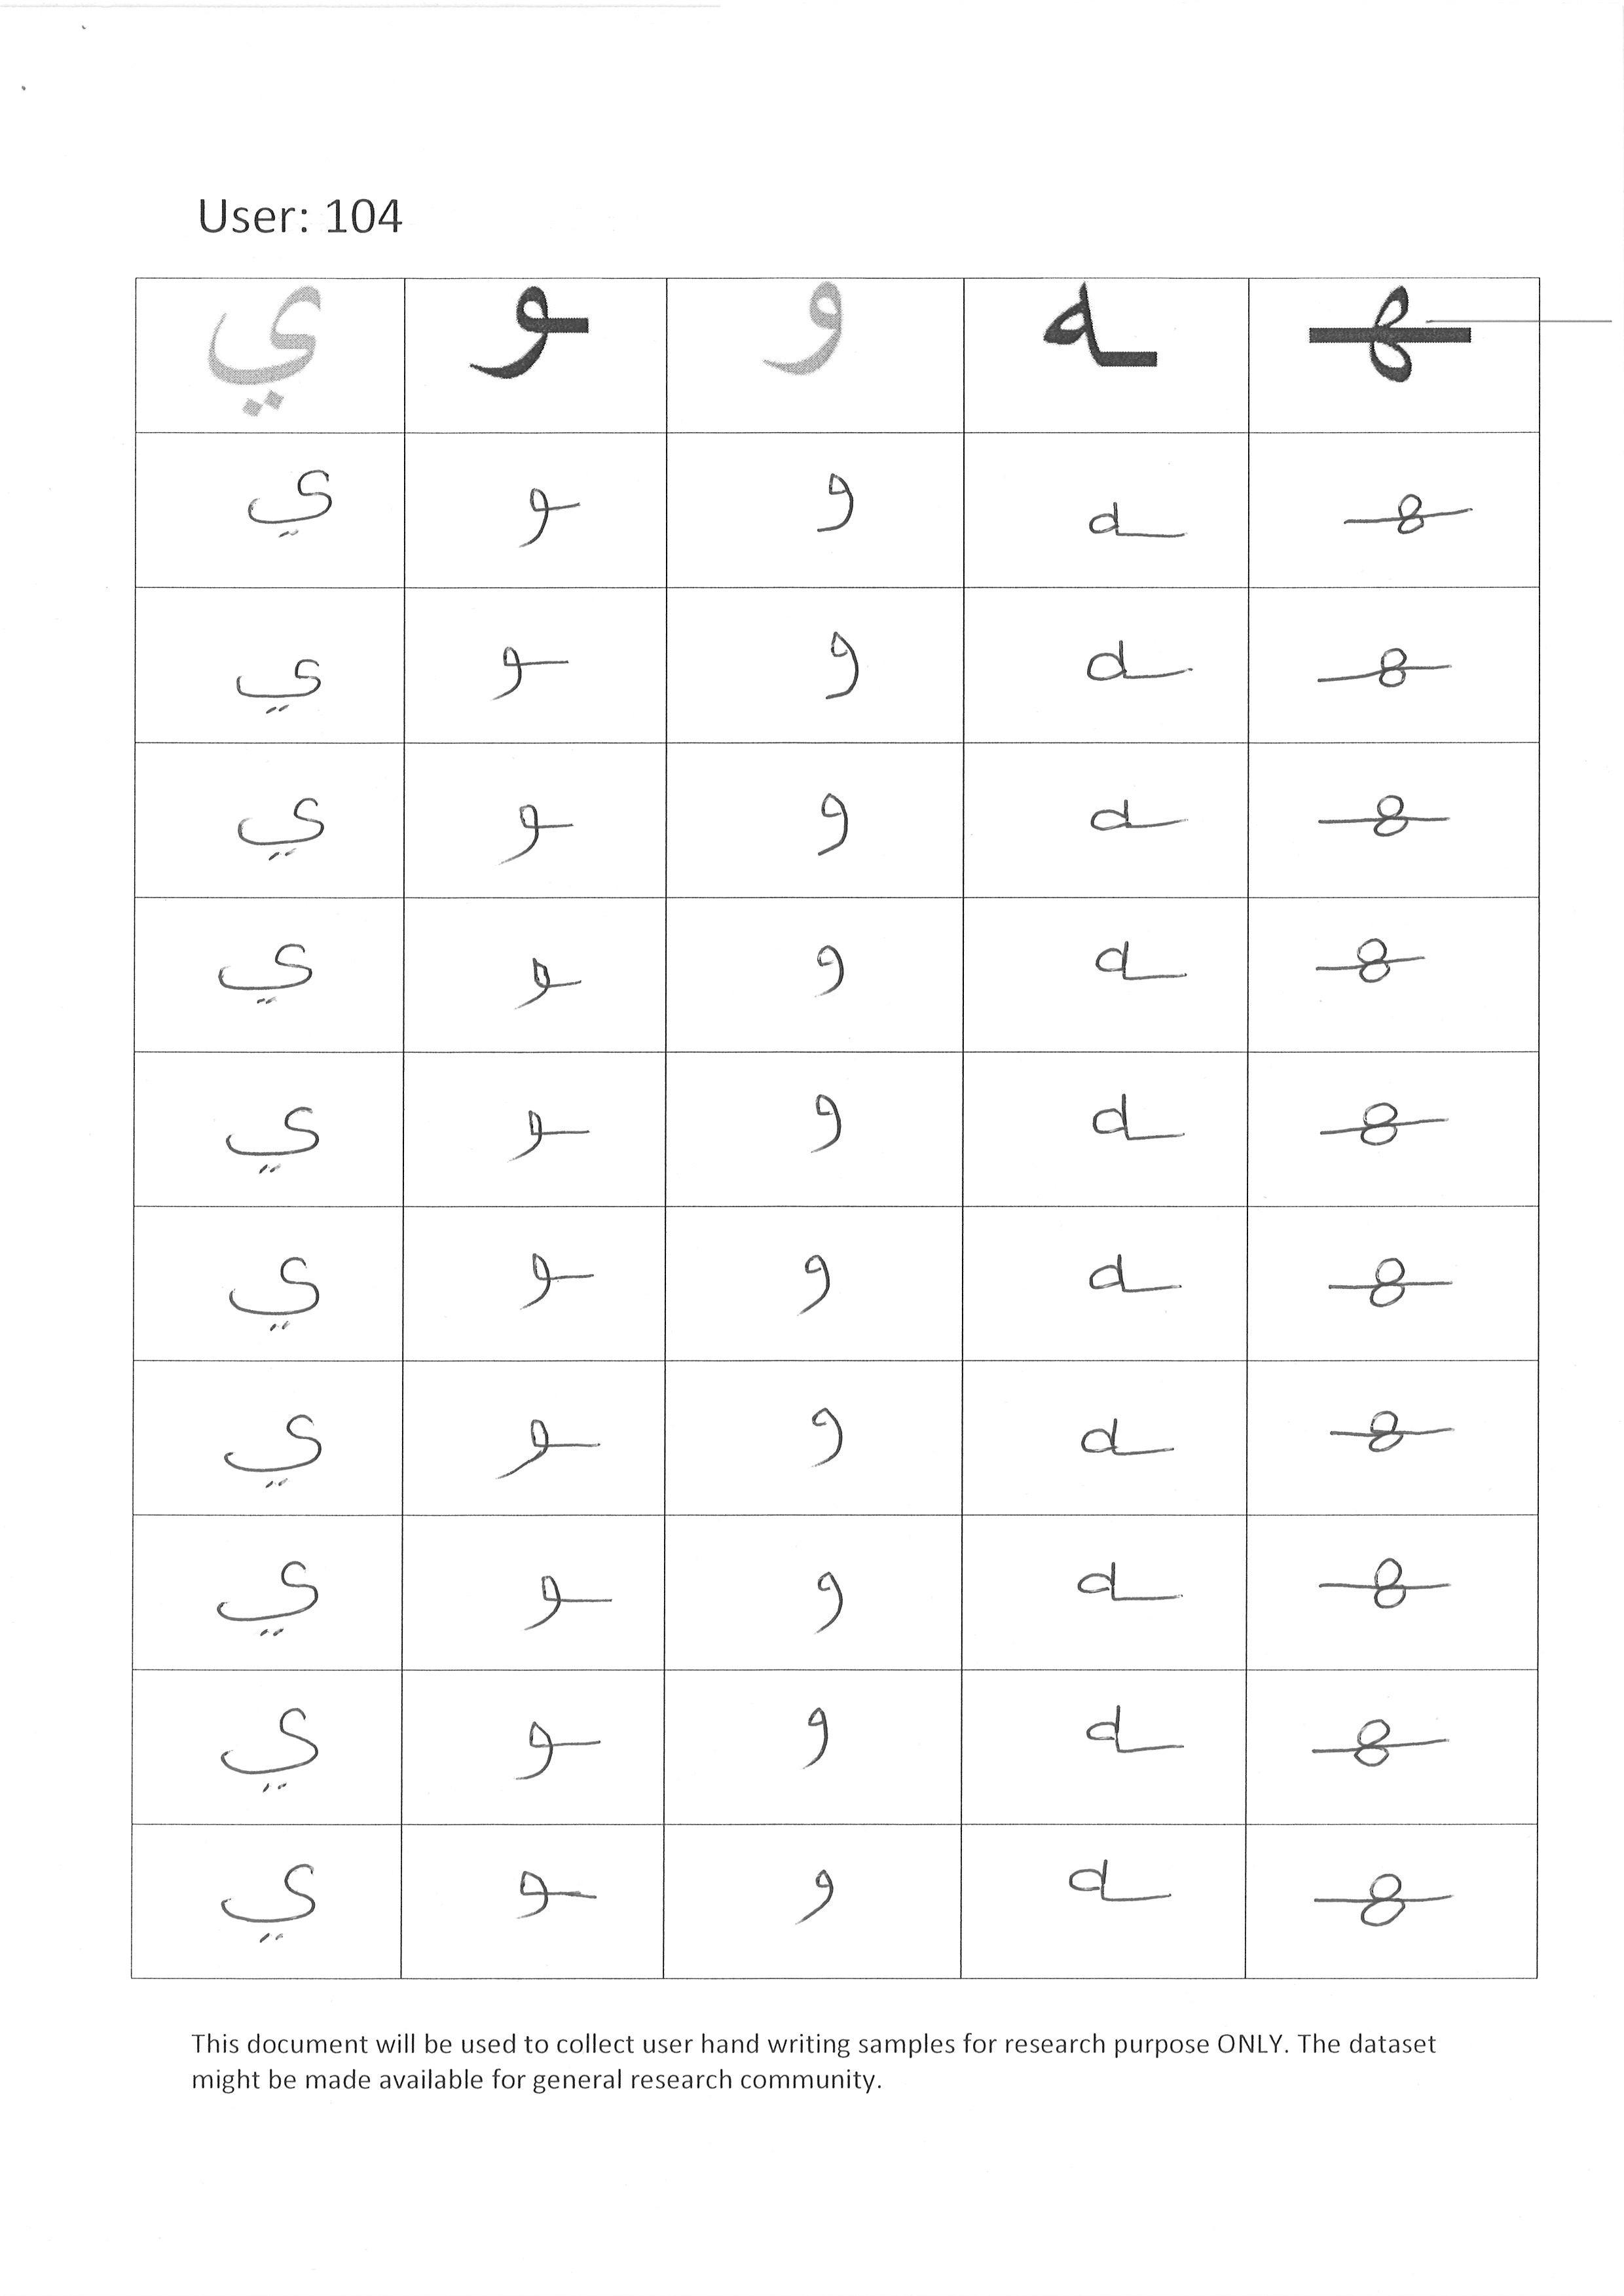 User: 104
ي ـو و ـه ـهـ
ي ـو و ـه ـهـ
ي ـو و ـه ـهـ
ي ـو و ـه ـهـ
ي ـو و ـه ـهـ
ي ـو و ـه ـهـ
ي ـو و ـه ـهـ
ي ـو و ـه ـهـ
ي ـو و ـه ـهـ
ي ـو و ـه ـهـ
ي ـو و ـه ـهـ
This document will be used to collect user hand writing samples for research purpose ONLY. The dataset
might be made available for general research community.